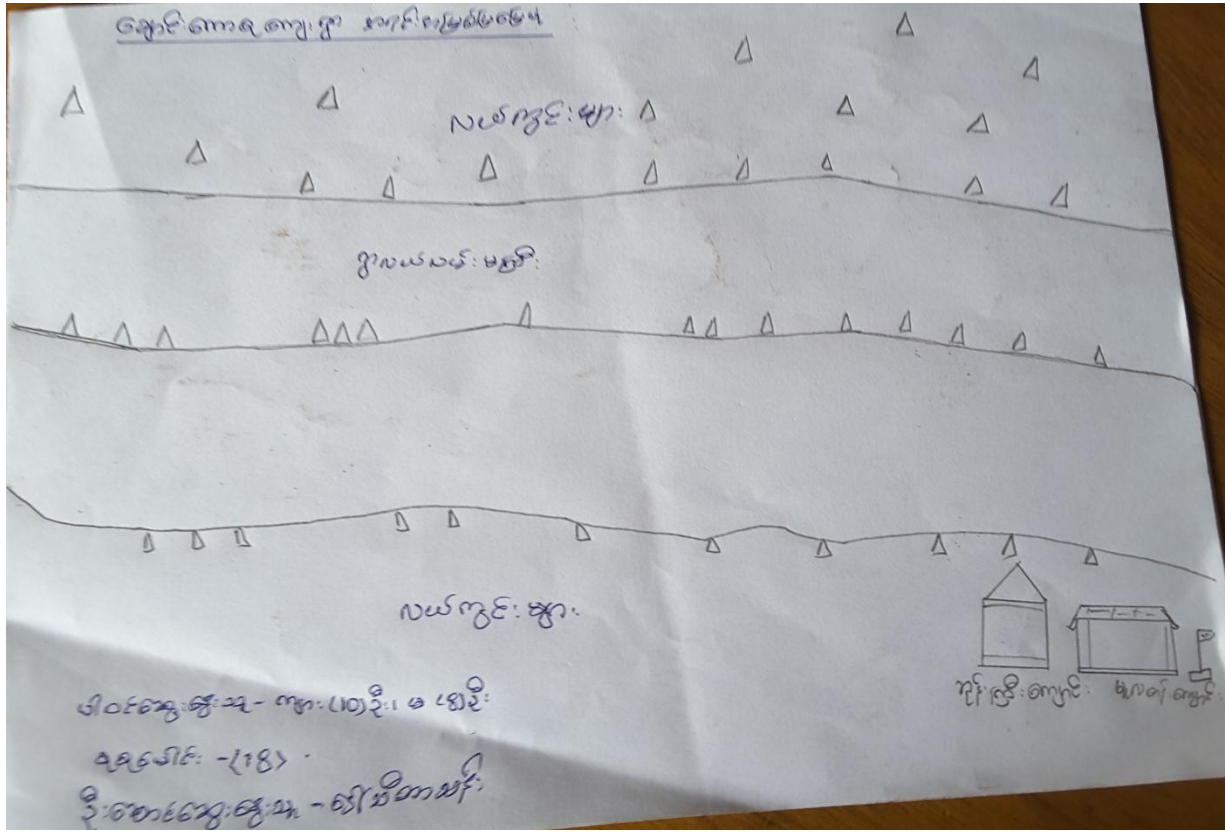 ချောင်းကောရကျေးရွာ
လယ်ကွင်းများ
ရွာလယ်လမ်းမကြီး
လယ်ကွင်းများ
ဘုန်းကြီးကျောင်း မူလတန်းကျောင်း
ပါဝင်ဆွေးနွေးသူ - ကျား (၁၀)ဦး၊ မ (၈)ဦး
စုစုပေါင်း - (၁၈)
ဦးဆောင်ဆွေးနွေးသူ -